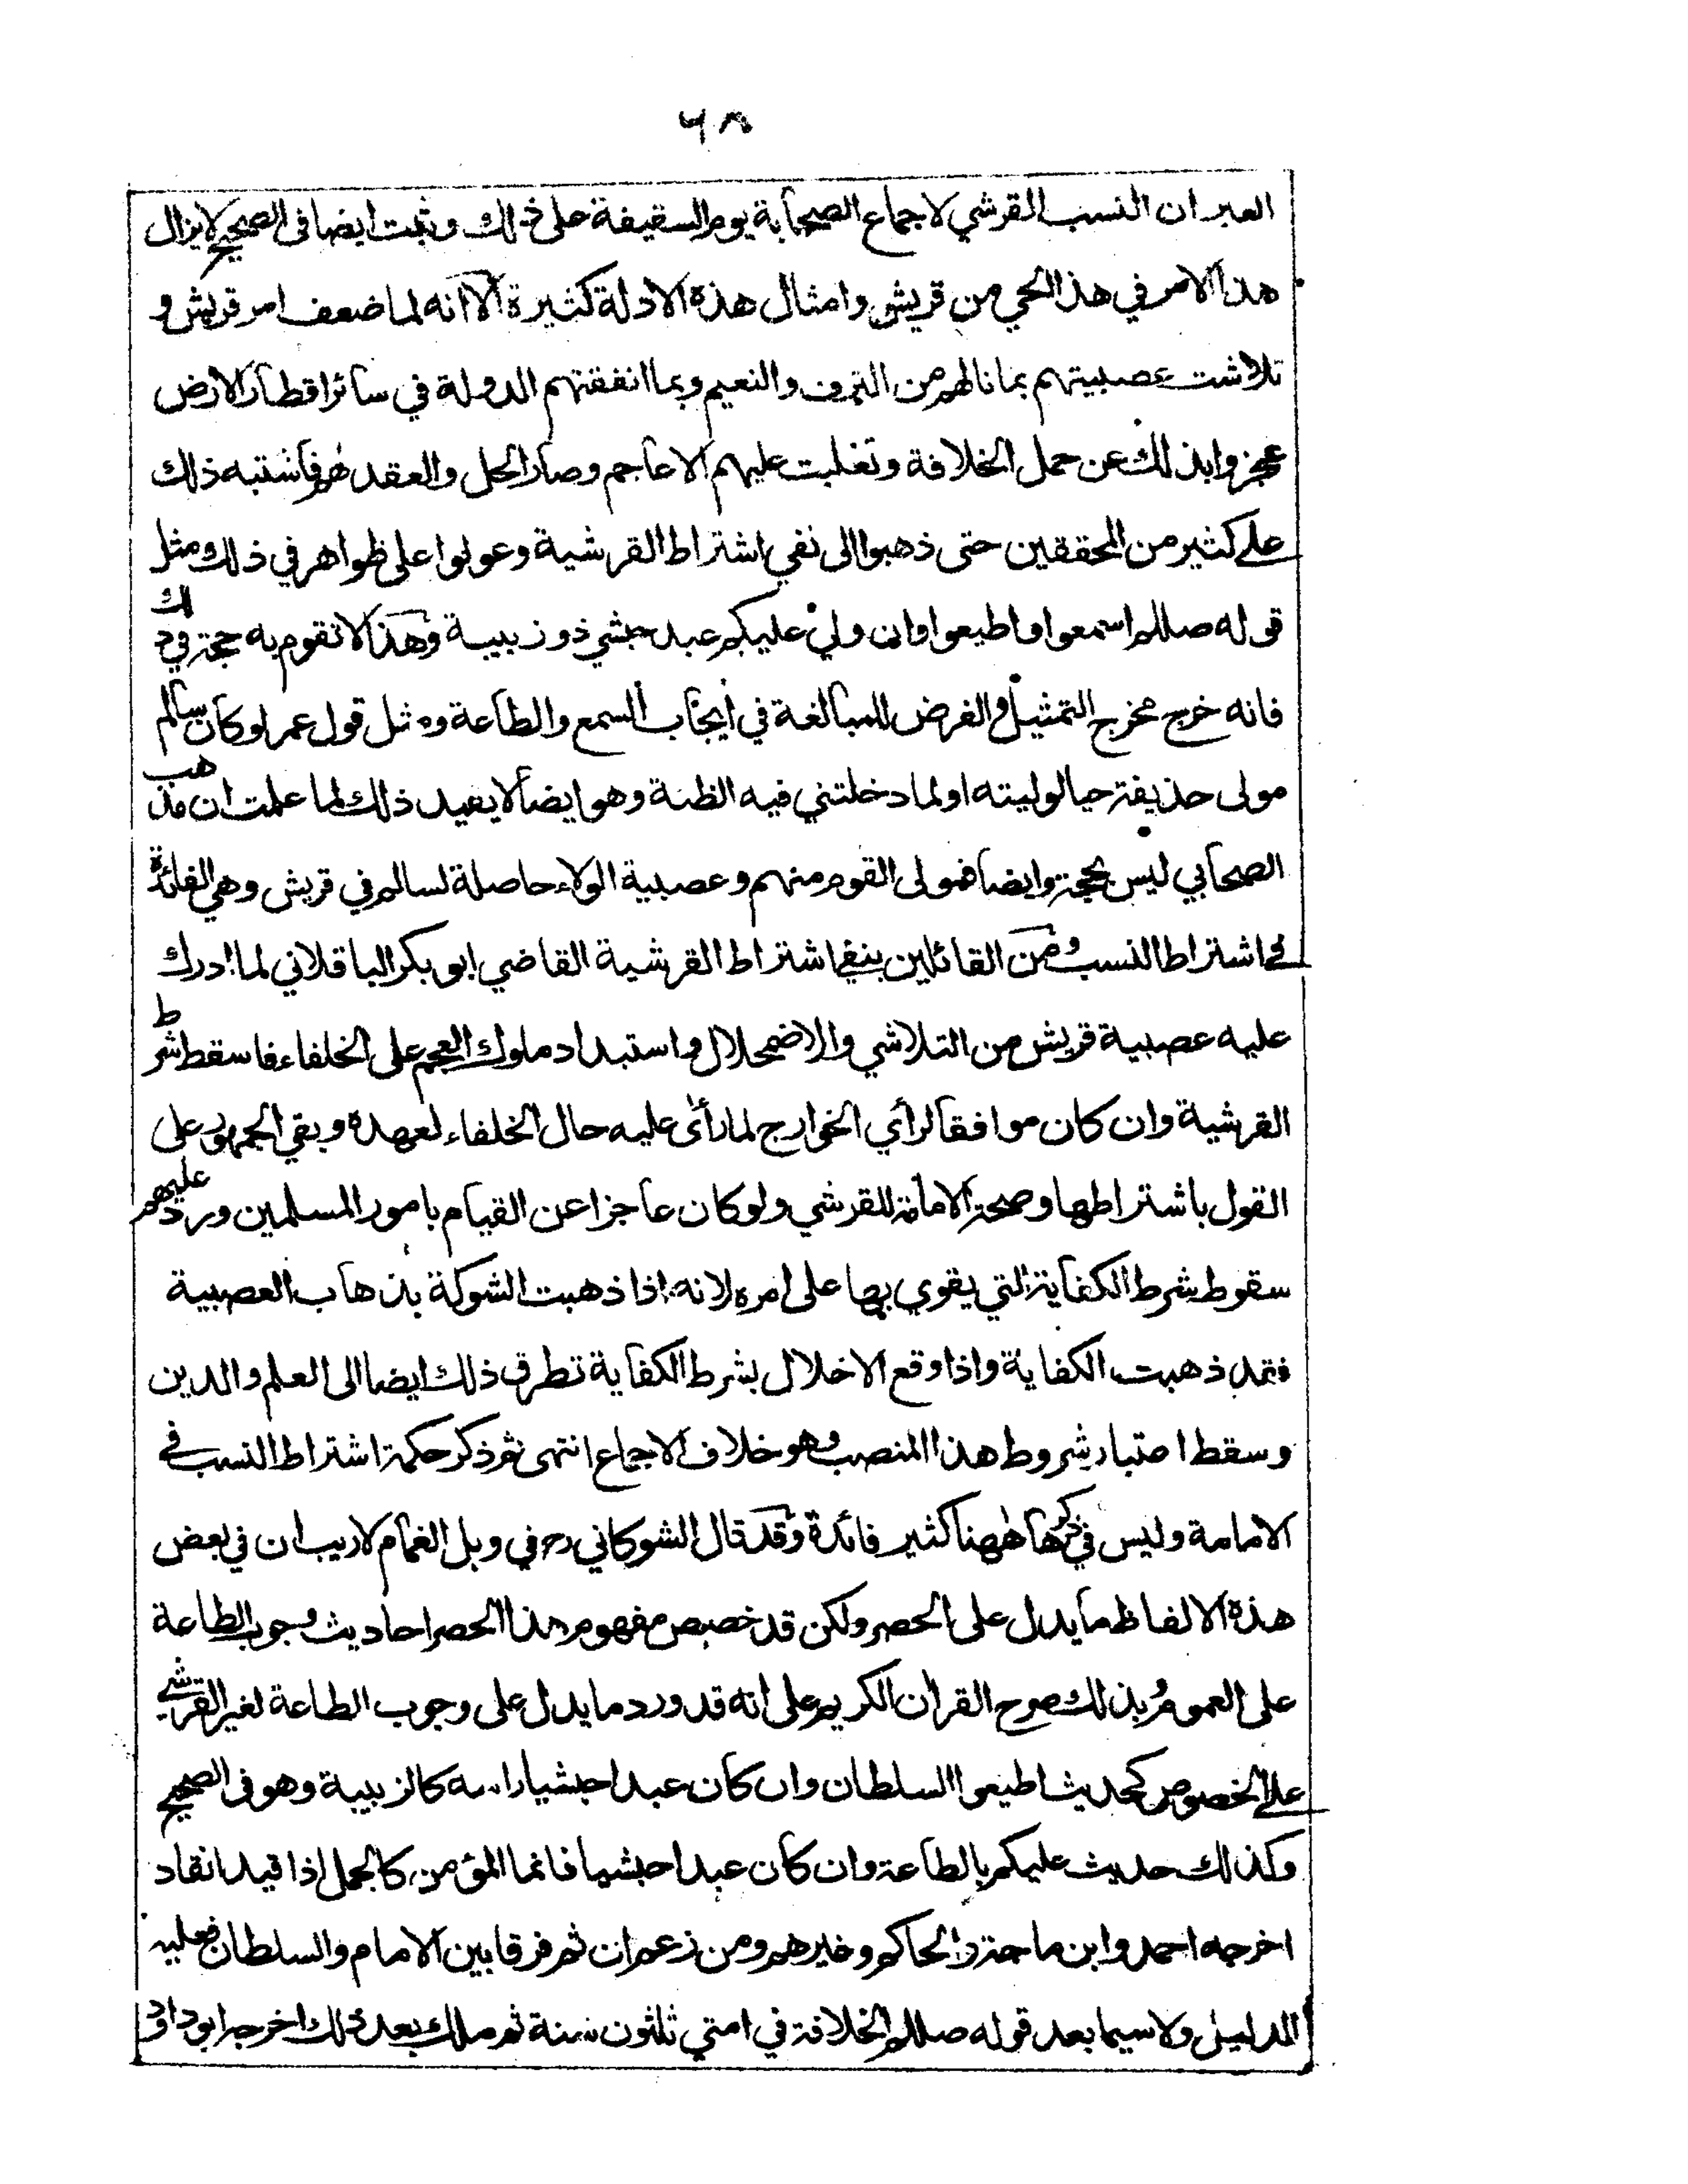 ٦٨
العبر ان النسب القرشي لاجماع الصحابة يوم السقيفة على ذلك وثبت ايضا في الصحيح لا يزال
هذا الامر في هذا الحي من قريش وامثال هذه الادلة كثيرة الا انه لما ضعف امر قريش و
تلاشت عصبيتهم بما نالهم من الترف والنعيم وبما انفقتهم الدولة في سائر اقطار الارض
عجزوا بذلك عن حمل الخلافة وتغلبت عليهم الاعاجم وصار الحل والعقد لهم فاشتبه ذلك
على كثير من المحققين حتى ذهبوا الى نفي اشتراط القرشية وعولوا على ظواهر في ذلك ومثل
قوله صللم اسمعوا واطيعوا وان ولي عليكم عبد حبشي ذو زبيبة وهذا لا تقوم به حجة في ذلك
فانه خرج مخرج التمثيل والفرض للمبالغة في ايجاب السمع والطاعة ومثل قول عمر لو كان سالم
مولى حذيفة حيا لوليته او لما دخلتني فيه الظنة وهو ايضا لا يفيد ذلك لما علمت ان مذهب
الصحابي ليس بحجة وايضا فمولى القوم منهم وعصبية الولاء حاصلة لسالم في قريش وهي الفائدة
في اشتراط النسب ومن القائلين بنفي اشتراط القرشية القاضي ابو بكر الباقلاني لما ادرك
عليه عصبية قريش من التلاشي والاضمحلال واستبداد ملوك العجم على الخلفاء فاسقط شرط
القرشية وان كان موافقا لرأي الخوارج لما رأى عليه حال الخلفاء لعهده وبقي الجمهور على
القول باشتراطها وصحة الامامة للقرشي ولو كان عاجزا عن القيام بامور المسلمين ورد عليهم
سقوط شرط الكفاية التي يقوي بها على امره لانه اذا ذهبت الشوكة بذهاب العصبية
فقد ذهبت الكفاية واذا وقع الاخلال بشرط الكفاية تطرق ذلك ايضا الى العلم والدين
وسقط اعتبار شروط هذا المنصب وهو خلاف الاجماع انتهى ثم ذكر حكمة اشتراط النسب في
الامامة وليس في ذكرها ههنا كثير فائدة وقد قال الشوكاني رح في وبل الغمام لا ريب ان في بعض
هذه الالفاظ ما يدل على الحصر ولكن قد خصص مفهوم هذا الحصر احاديث وجوب الطاعة
على العموم وبذلك صرح القران الكريم على انه قد ورد ما يدل على وجوب الطاعة لغير القرشي
على الخصوص كحديث اطيعوا السلطان وان كان عبدا حبشيا راسه كالزبيبة وهو في الصحيح
وكذلك حديث عليكم بالطاعة وان كان عبدا حبشيا فانما المؤمن كالجمل اذا قيد انقاد
اخرجه احمد وابن ماجة والحاكم وغيرهم ومن زعم ان ثم فرقا بين الامام والسلطان فعليه
الدليل ولا سيما بعد قوله صللم الخلافة في امتي ثلثون سنة ثم ملك بعد ذلك اخرجه ابو داود